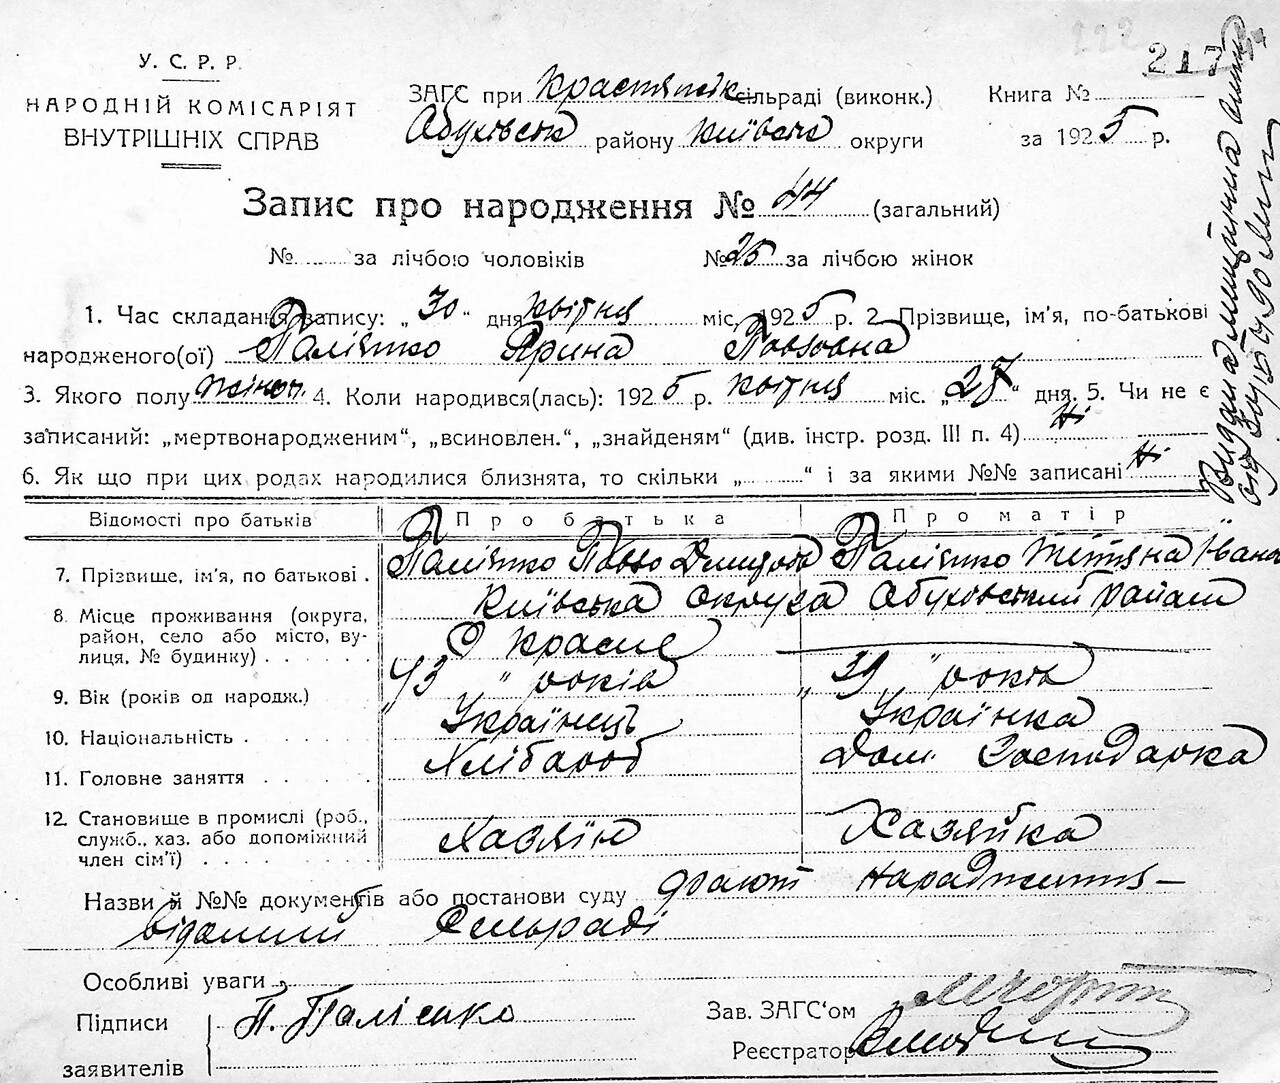 222
217
У. С. Р. Р.
НАРОДНІЙ КОМІСАРІЯТ
ВНУТРІШНІХ СПРАВ
ЗАГС при сільраді (виконк.)
Обухівськ району Київськ округи
Книга №
за 1925 р.
Запис про народження № 44 (загальний)
№ за лічбою чоловіків № 25 за лічбою жінок
1. Час складання запису: „30“ дня квітня міс. 1925 р. 2. Прізвище, ім'я, по-батькові
народженого(ої) Палієнко Ярина Павловна
3. Якого полу жіноч. 4. Коли народився(лась): 1925 р. квітня міс. „28“ дня. 5. Чи не є
записаний: „мертвонародженим“, „всиновлен.“, „знайденям“ (див. інстр. розд. III п. 4) Ні
6. Як що при цих родах народилися близнята, то скільки „ “ і за якими №№ записані Ні
Відомості про батьків Про батька Про матір
7. Прізвище, ім'я, по батькові. Палієнко Павло Палієнко Тетяна Іван
8. Місце проживання (округа, район, село або місто, вулиця, № будинку) Київська округа Обуховський район
С Красне
9. Вік (років од народж.) 43 „ років „ 39 „ років
10. Національність Українець Українка
11. Головне заняття Хлібороб Дом. Господарка
12. Становище в промислі (роб., служб., хаз. або допоміжний член сім'ї) Хазяїн Хазяйка
Назви й №№ документів або постанови суду факт народження
відомий Сельраді
Особливі уваги
Підписи П. Палієнко Зав. ЗАГС'ом
заявителів Реєстратор